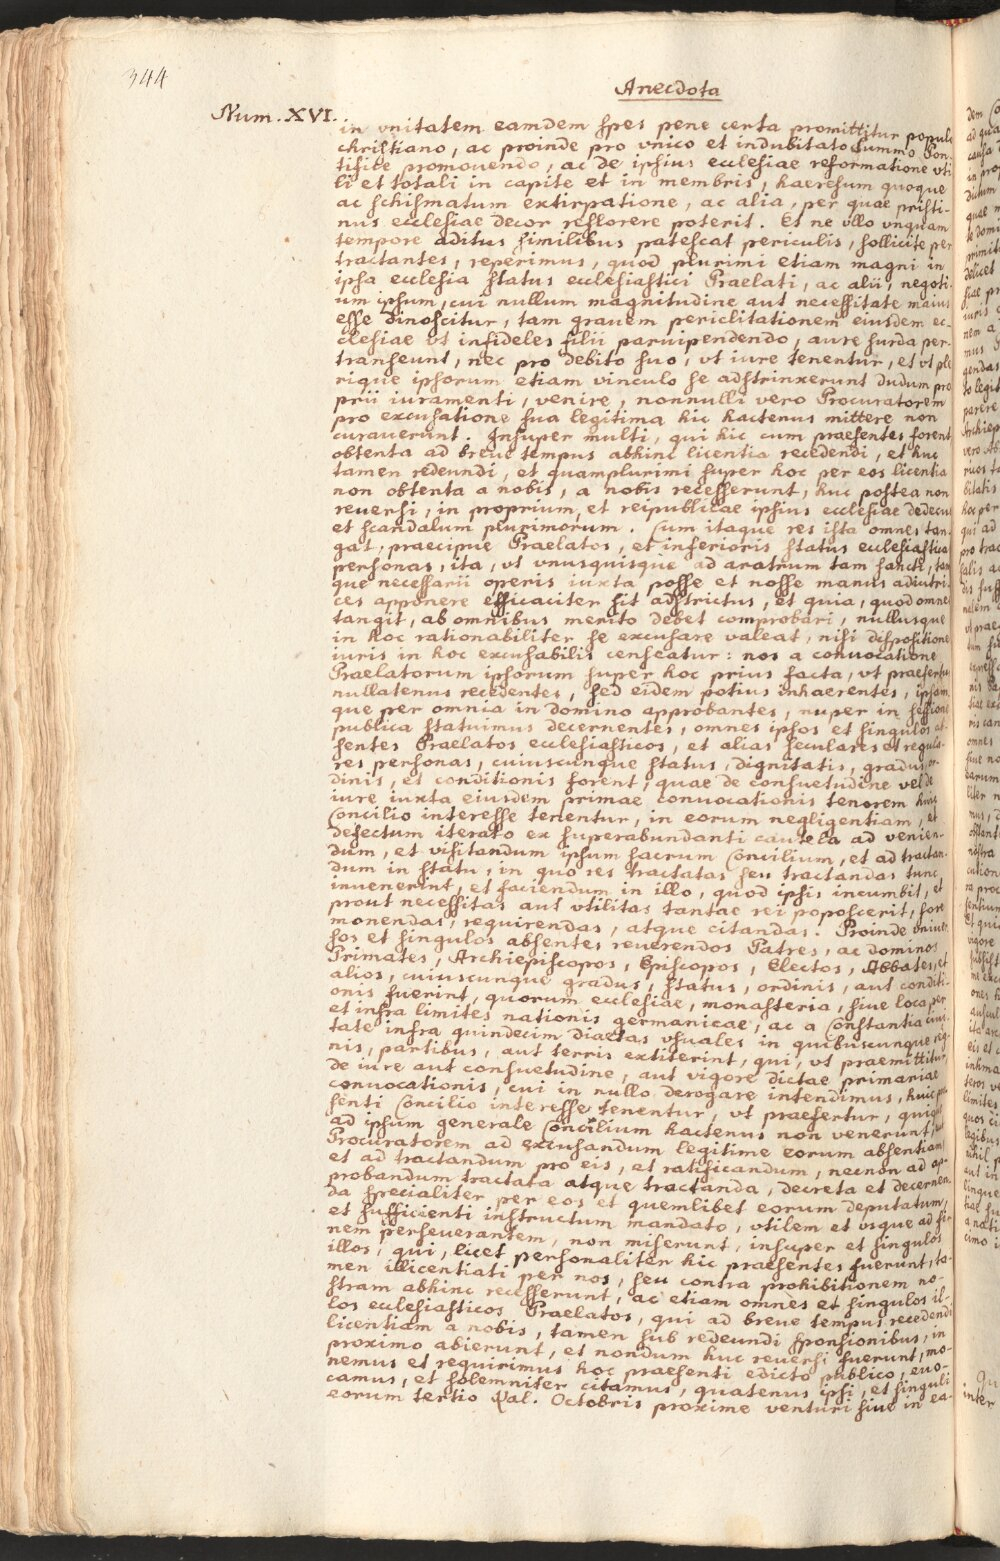 344
Anecdota
Num. XVI.
in vnitatem eamdem spes pene certa promittitur populo
christiano, ac proinde pro vnico et indubitato summo Pon-
tifice promouendo, ac de ipsius ecclesiae reformatione vti
li et totali in capite et in membris, haeresum quoque
ac schismatum extirpatione, ac alia, per quae pristi-
nus ecclesiae decor reflorere poterit. Et ne vllo vnquam
tempore aditus similibus patescat periculis, sollicite per
tractantes, reperimus, quod plurimi etiam magni in
ipsa ecclesia status ecclesiastici Praelati, ac alii, negoti-
um ipsum, cui nullum magnitudine aut necessitate maius
esse dinoscitur, tam grauem periclitationem eiusdem ec-
clesiae vt infideles filii paruipendendo, aure surda per-
transeunt, nec pro debito suo, vt iure tenentur, et vt ple
rique ipsorum etiam vinculo se adstrinxerunt dudum pro
prii iuramenti, venire, nonnulli vero Procuratorem
pro excusatione sua legitima hic hactenus mittere non
curauerunt. Insuper multi, qui hic cum praesentes forent
obtenta ad breue tempus abhinc licentia recedendi, et huc
tamen redeundi, et quamplurimi super hoc per eos licentia
non obtenta a nobis, a nobis recesserunt, huc postea non
reuersi, in proprium, et reipublicae ipsius ecclesiae dedecus
et scandalum plurimorum. Cum itaque res ista omnes tan-
gat, praecipue Praelatos, et inferioris status ecclesiasticas
personas, ita, vt vnusquisque ad aratrum tam sancti, tam
que necessarii operis iuxta posse et nosse manus adiutri-
ces apponere efficaciter sit adstrictus, et quia, quod omnes
tangit, ab omnibus merito debet comprobari, nullusque
in hoc rationabiliter se excusare valeat, nisi dispositione
iuris in hoc excusabilis censeatur: nos a conuocatione
Praelatorum ipsorum super hoc prius facta, vt praefertur
nullatenus recedentes, sed eidem potius inhaerentes, ipsam
que per omnia in domino approbantes, nuper in sessione
publica statuimus decernentes, omnes ipsos et singulos ab-
sentes Praelatos ecclesiasticos, et alias seculares et regula-
res personas, cuiuscunque status, dignitatis, gradus, or-
dinis, et conditionis forent, quae de consuetudine vel de
iure iuxta eiusdem primae conuocationis tenorem huic
Concilio interesse tenentur, in eorum negligentiam, et
defectum iterato ex superabundanti cautela ad venien-
dum, et visitandum ipsum sacrum Concilium, et ad tractan-
dum in statu, in quo res tractatas seu tractandas tunc
inuenerint, et faciendum in illo, quod ipsis incumbit, et
prout necessitas aut vtilitas tantae rei poposcerit, fore
monendas, requirendas, atque citandas. Proinde vniuer-
sos et singulos absentes reuerendos Patres, ac dominos
Primates, Archiepiscopos, Episcopos, Electos, Abbates, et
alios, cuiuscunque gradus, status, ordinis, aut conditi-
onis fuerint, quorum ecclesiae, monasteria, siue loca per
et infra limites nationis germanicae, ac a Constantia ciui-
tate infra quindecim diaetas vsuales in quibuscunque reg-
nis, partibus, aut terris extiterint, qui, vt praemittitur
de iure aut consuetudine, aut vigore dictae primariae
conuocationis, cui in nullo derogare intendimus, huic prae-
senti Concilio interesse tenentur, vt praefertur, quique
ad ipsum generale Concilium hactenus non venerunt, aut
Procuratorem ad excusandum legitime eorum absentiam
et ad tractandum pro eis, et ratificandum, necnon ad ap-
probandum tractata atque tractanda, decreta et decernen-
da specialiter per eos et quemlibet eorum deputatum,
et sufficienti instructum mandato, vtilem et vsque ad fi-
nem perseuerantem, non miserunt, insuper et singulos
illos, qui, licet personaliter hic praesentes fuerunt, ta-
men illicentiati per nos, seu contra prohibitionem no-
stram abhinc recesserunt, ac etiam omnes et singulos il-
los ecclesiasticos Praelatos, qui ad breue tempus recedendi
licentiam a nobis, tamen sub redeundi sponsionibus, in
proximo abierunt, et nondum huc reuersi fuerunt, mo-
nemus et requirimus hoc praesenti edicto publico, euo-
camus, et solemniter citamus, quatenus ipsi, et singuli
eorum tertio Kal. Octobris proxime venturi siue in ea-